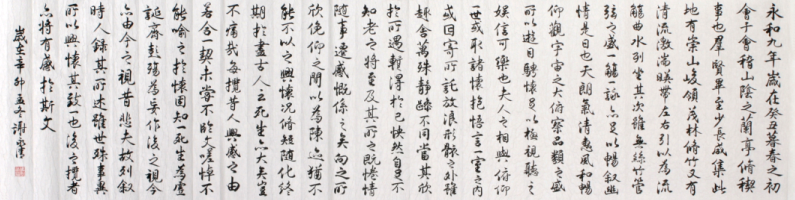 永和九年歲在癸丑暮春之初
會于會稽山陰之蘭亭脩禊
事也群賢畢至少長咸集此
地有崇山峻領茂林脩竹又有
清流激湍暎帶左右引以為流
觴曲水列坐其次雖無絲竹管
弦之盛一觴一詠亦足以暢敘幽
情是日也天朗氣清惠風和暢
仰觀宇宙之大俯察品類之盛
所以遊目騁懷足以極視聽之
娛信可樂也夫人之相與俯仰
一世或取諸懷抱悟言一室之內
或因寄所託放浪形骸之外雖
趣舍萬殊靜躁不同當其欣
於所遇暫得於己快然自足不
知老之將至及其所之既惓情
隨事遷感慨係之矣向之所
欣俛仰之間以為陳迹猶不
能不以之興懷況脩短隨化終
期於盡古人云死生亦大矣豈
不痛哉每攬昔人興感之由
若合一契未嘗不臨文嗟悼不
能喻之於懷固知一死生為虛
誕齊彭殤為妄作後之視今
亦由今之視昔悲夫故列敘
時人錄其所述雖世殊事異
所以興懷其致一也後之攬者
亦將有感於斯文
歲在辛卯孟冬謝